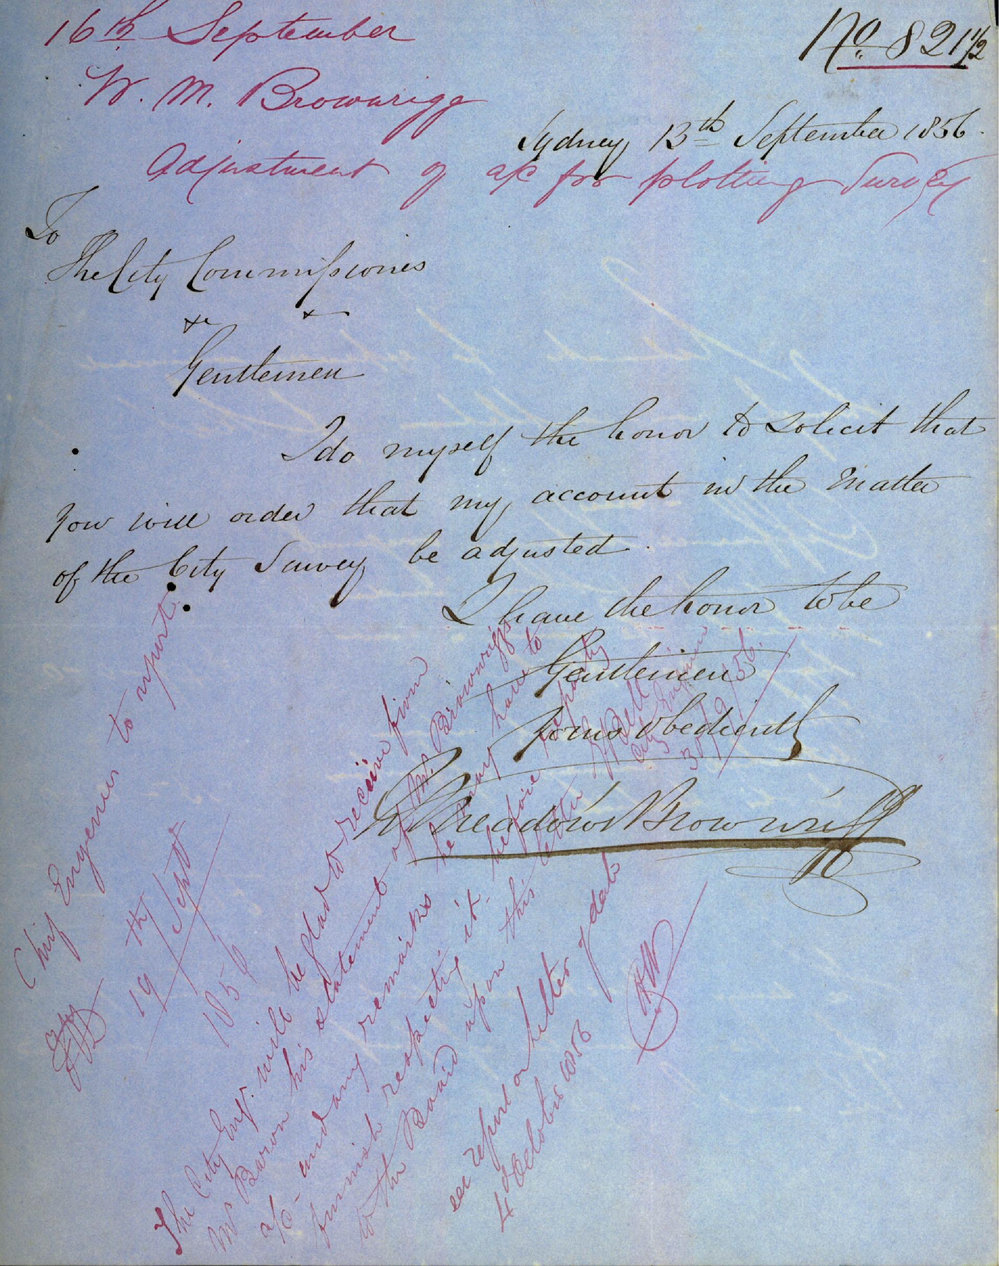 16th September
No. 821 1/2
W. M. Brownrigg
Sydney 13th September 1856.
Adjustment of a/c for plotting Survey
To
The City Commissiones
&c &c
Gentlemen
I do myself the honor to solicit that
you will order that my account in the Matter
of the City Survey be adjusted.
I have the honor to be
Gentlemen
Yours obediently
Meadows Brownrigg
Chief Engineer to report.
19th Septr
1856
The City Engr. will be glad to receive from
Mr Baron his statement of Mr. Brownrigg's
a/c - and any remarks he may have to
furnish respecting it - before reporting
to the Board upon this letter
W Bell
City Engineer
30/9/56.
see report on letter of date
4th October 1856